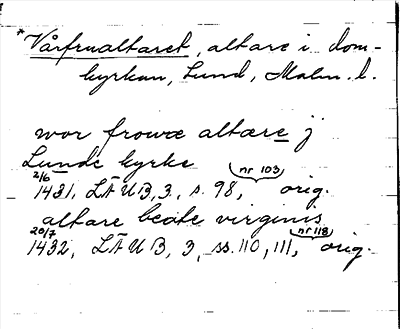 *Vårfrualtaret, altare i dom-
kyrkan, Lund, Malm. l.
wor frowæ altære j
Lunde kyrke
2/6 1431, LÄUB, 3, s. 98, nr 103, orig.
altare beate virginis
20/7 1432, LÄUB, 3, ss. 110, 111, nr 118, orig.